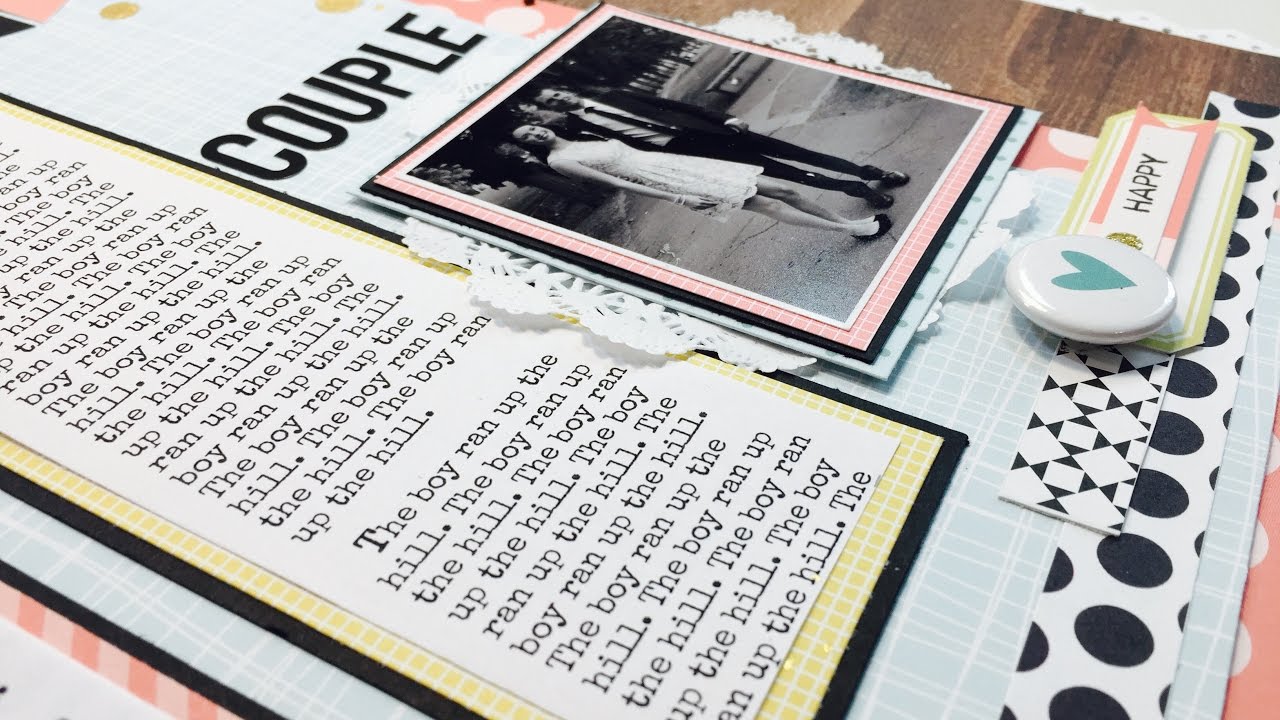 COUPLE
HAPPY
up the hill. The boy
ran up the hill. The
boy ran up the hill.
The boy ran up the
hill. The boy ran up
the hill. The boy ran
up the hill. The boy
ran up the hill. The
boy ran up the hill.
The boy ran up the
hill. The boy ran up
the hill. The boy ran
up the hill.
The boy ran up the
hill. The boy ran up
the hill. The boy ran
up the hill. The boy
ran up the hill. The
boy ran up the hill.
The boy ran up the
hill. The boy ran up
the hill. The boy ran
up the hill. The boy
an up the hill. The